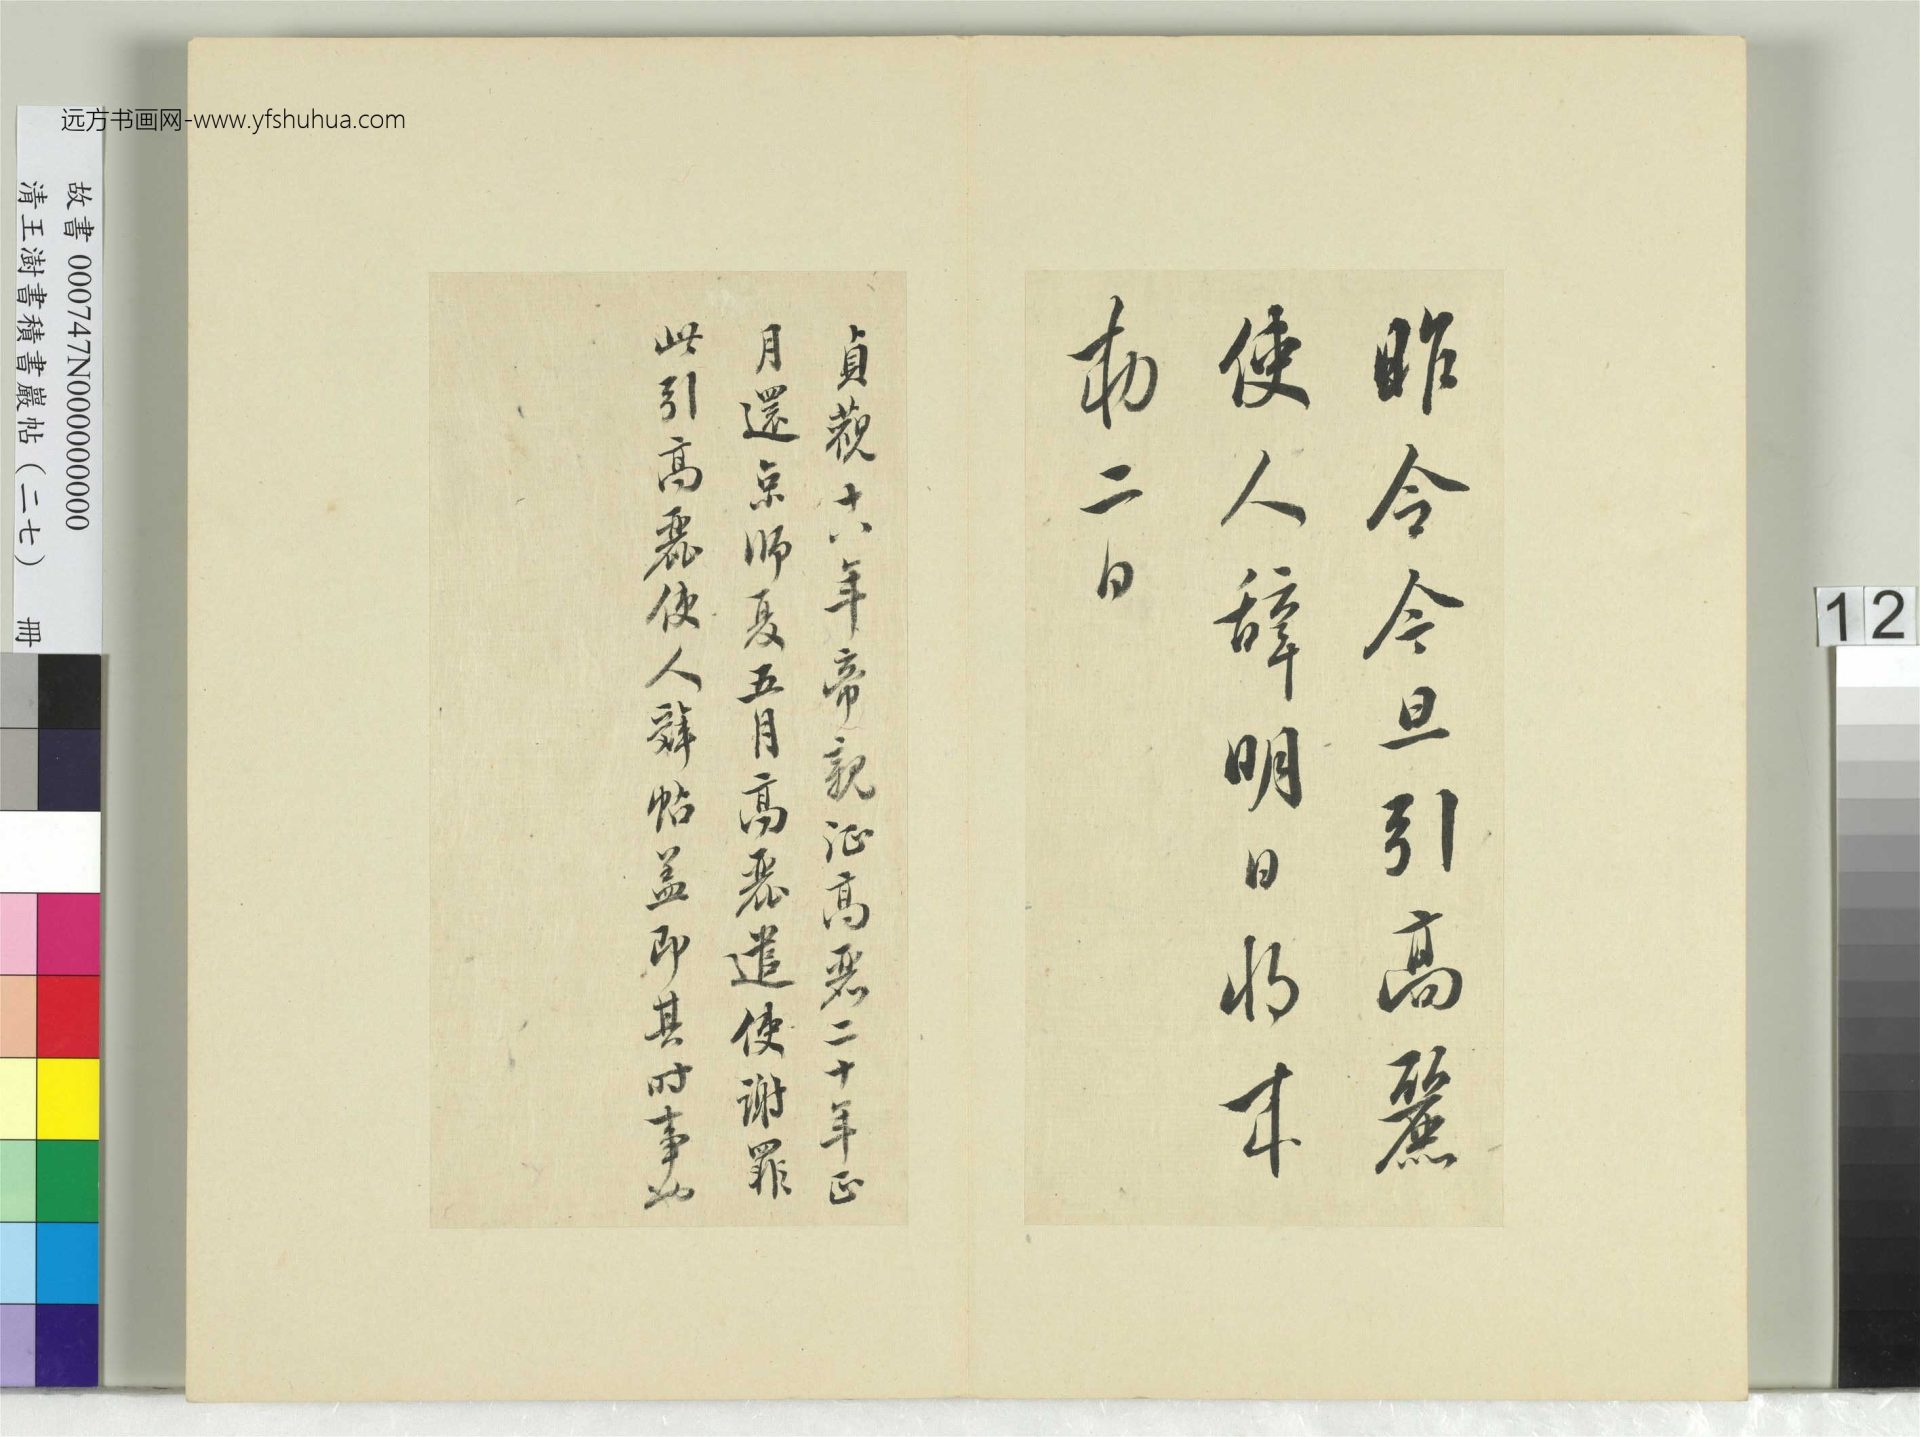 远方书画网-www.yfshuhua.com
故書 000747N000000000
清王澍書積書巖帖(二七) 冊
12
昨令今旦引高麗
使人辭明日將來
勅二日
貞觀十八年帝親征高麗二十年正
月還京師夏五月高麗遣使謝罪
此引高麗使人辭帖蓋即其時事也